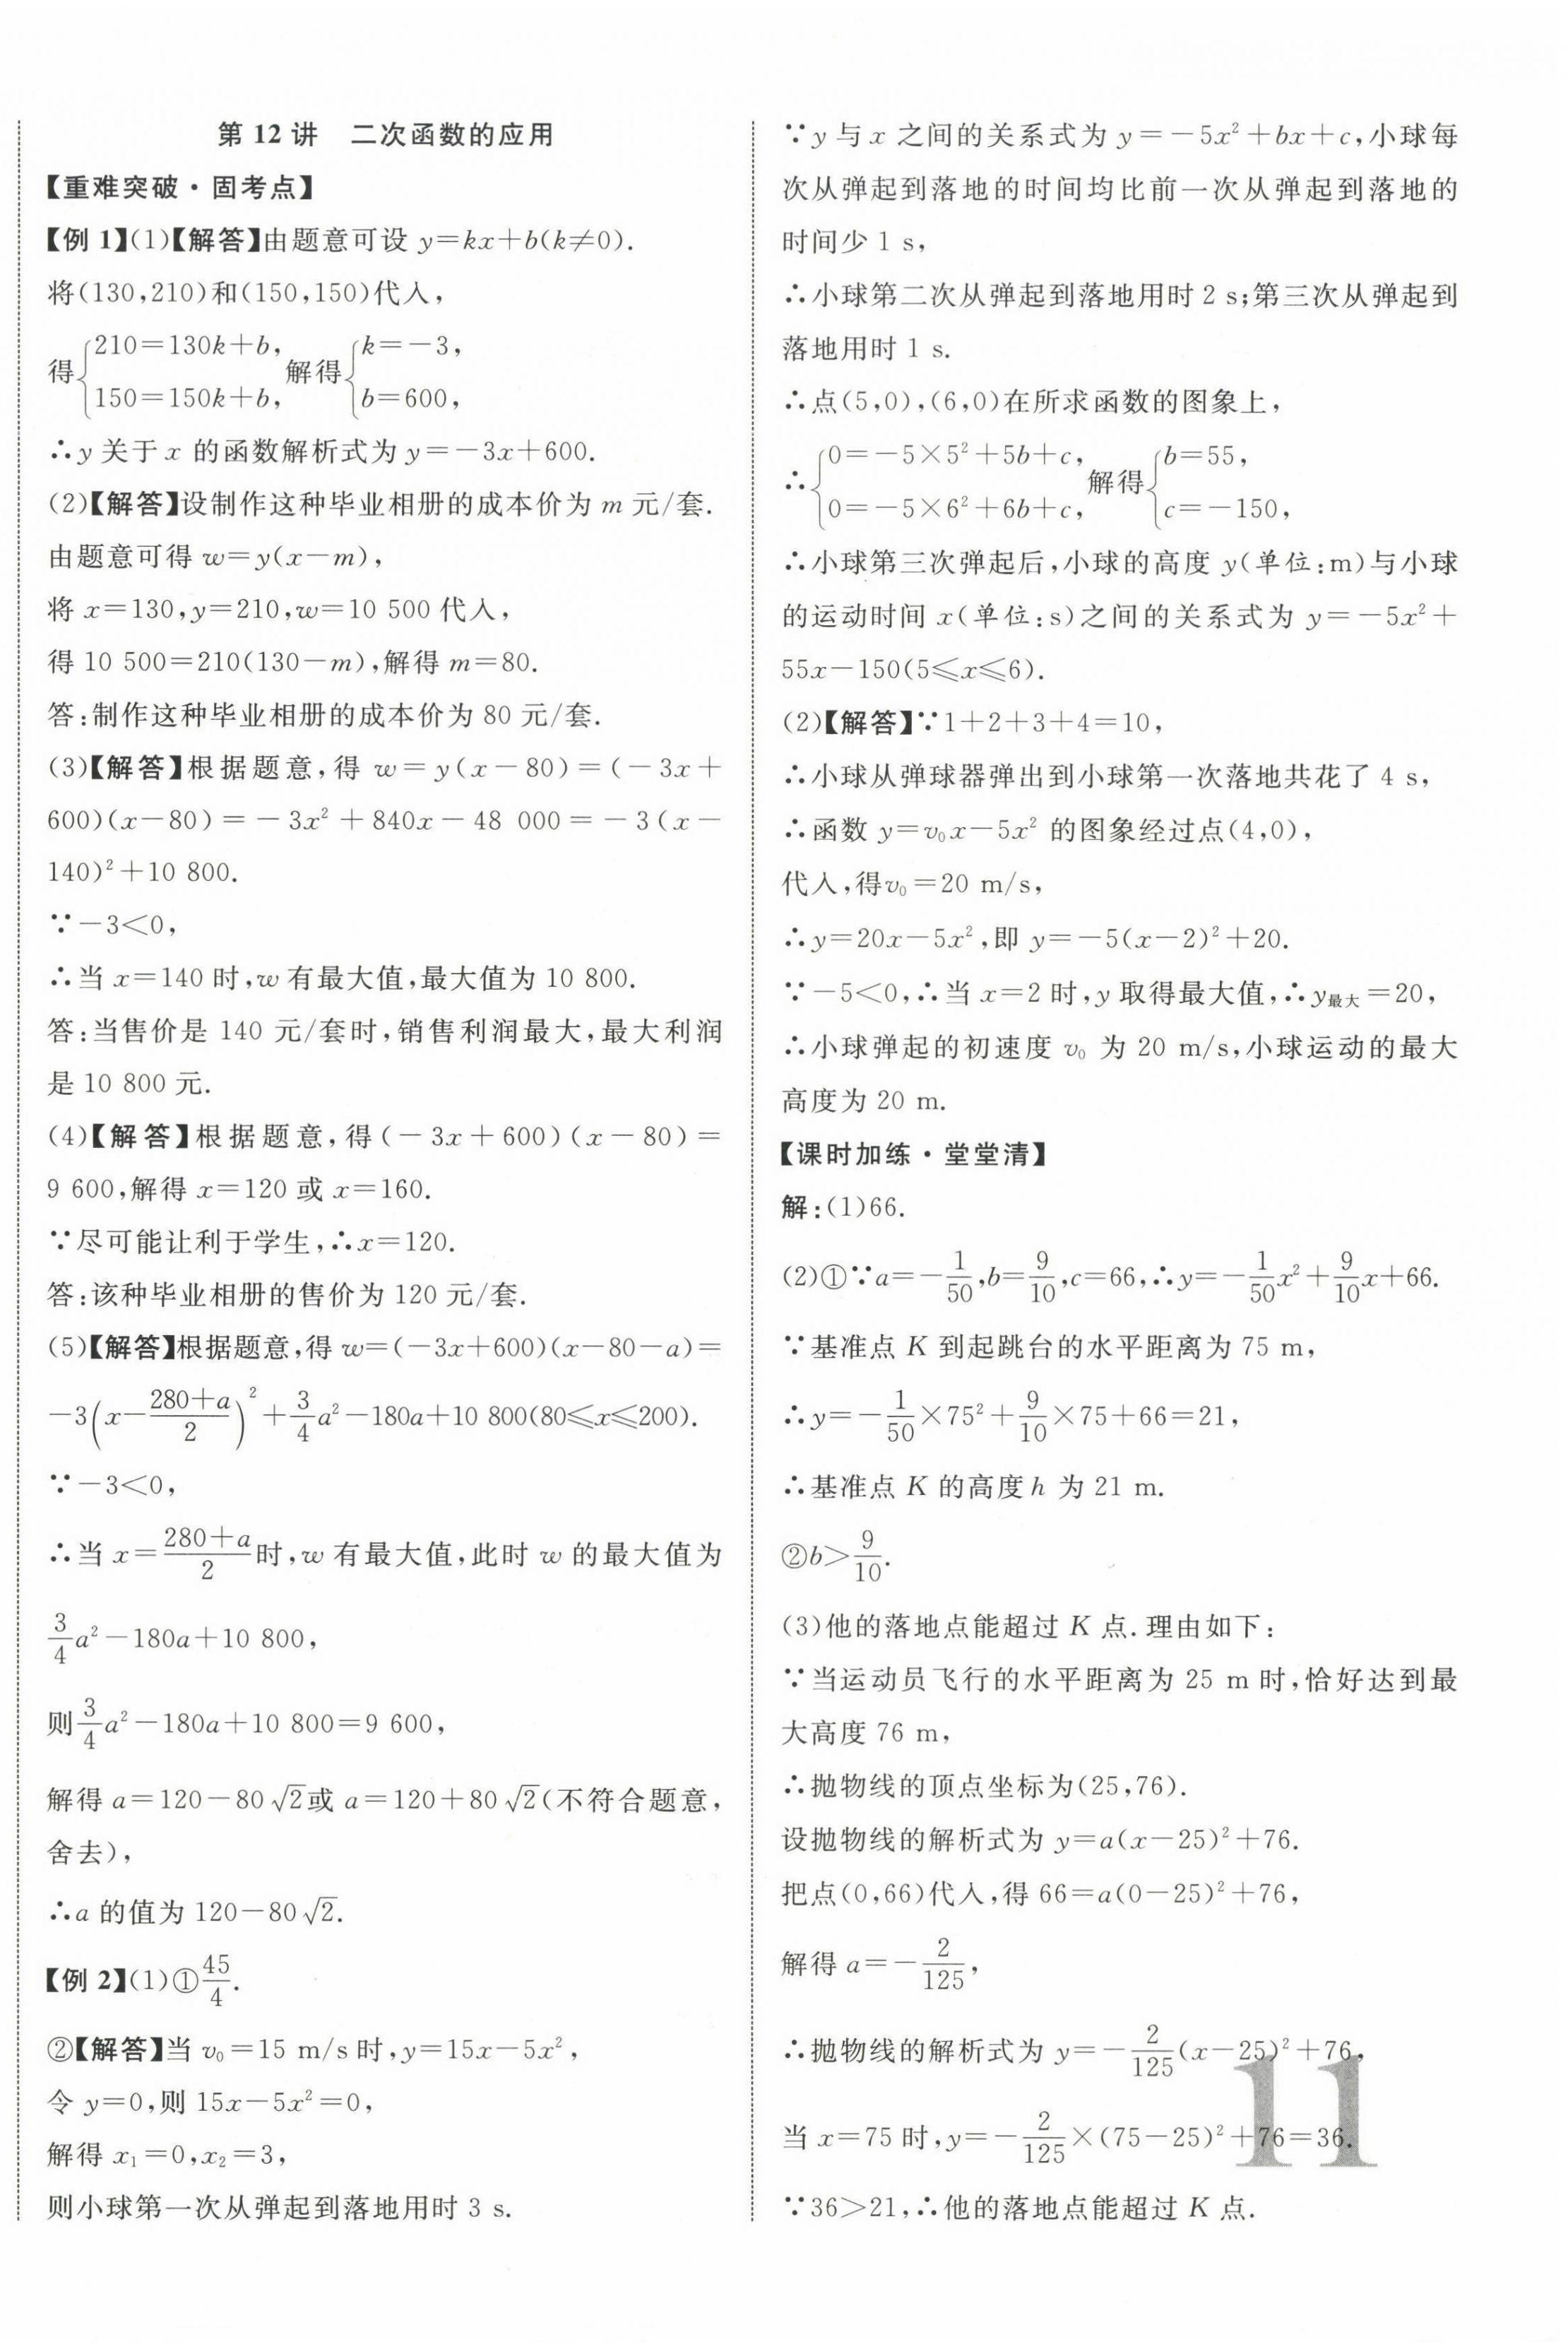 第 12 讲　二次函数的应用
【重难突破·固考点】
【例 1】(1)【解答】由题意可设 y=kx+b(k≠0).
将(130,210)和(150,150)代入,
得{210=130k+b, 150=150k+b, 解得{k=-3, b=600,
∴y 关于 x 的函数解析式为 y=-3x+600.
(2)【解答】设制作这种毕业相册的成本价为 m 元/套.
由题意可得 w=y(x-m),
将 x=130,y=210,w=10 500 代入,
得 10 500=210(130-m),解得 m=80.
答:制作这种毕业相册的成本价为 80 元/套.
(3)【解答】根据题意,得 w=y(x-80)=(-3x+
600)(x-80)=-3x²+840x-48 000=-3(x-
140)²+10 800.
∵-3<0,
∴当 x=140 时,w 有最大值,最大值为 10 800.
答:当售价是 140 元/套时,销售利润最大,最大利润
是 10 800 元.
(4)【解答】根据题意,得(-3x+600)(x-80)=
9 600,解得 x=120 或 x=160.
∵尽可能让利于学生,∴x=120.
答:该种毕业相册的售价为 120 元/套.
(5)【解答】根据题意,得 w=(-3x+600)(x-80-a)=
-3(x-(280+a)/2)²+3/4a²-180a+10 800(80≤x≤200).
∵-3<0,
∴当 x=(280+a)/2时,w 有最大值,此时 w 的最大值为
3/4a²-180a+10 800,
则3/4a²-180a+10 800=9 600,
解得 a=120-80√2或 a=120+80√2(不符合题意,
舍去),
∴a 的值为 120-80√2.
【例 2】(1)①45/4.
②【解答】当 v₀=15 m/s 时,y=15x-5x²,
令 y=0,则 15x-5x²=0,
解得 x₁=0,x₂=3,
则小球第一次从弹起到落地用时 3 s.
∵y 与 x 之间的关系式为 y=-5x²+bx+c,小球每
次从弹起到落地的时间均比前一次从弹起到落地的
时间少 1 s,
∴小球第二次从弹起到落地用时 2 s;第三次从弹起到
落地用时 1 s.
∴点(5,0),(6,0)在所求函数的图象上,
∴{0=-5×5²+5b+c, 0=-5×6²+6b+c, 解得{b=55, c=-150,
∴小球第三次弹起后,小球的高度 y(单位:m)与小球
的运动时间 x(单位:s)之间的关系式为 y=-5x²+
55x-150(5≤x≤6).
(2)【解答】∵1+2+3+4=10,
∴小球从弹球器弹出到小球第一次落地共花了 4 s,
∴函数 y=v₀x-5x² 的图象经过点(4,0),
代入,得v₀=20 m/s,
∴y=20x-5x²,即 y=-5(x-2)²+20.
∵-5<0,∴当 x=2 时,y 取得最大值,∴y最大=20,
∴小球弹起的初速度 v₀ 为 20 m/s,小球运动的最大
高度为 20 m.
【课时加练·堂堂清】
解:(1)66.
(2)①∵a=-1/50,b=9/10,c=66,∴y=-1/50x²+9/10x+66.
∵基准点 K 到起跳台的水平距离为 75 m,
∴y=-1/50×75²+9/10×75+66=21,
∴基准点 K 的高度 h 为 21 m.
②b>9/10.
(3)他的落地点能超过 K 点.理由如下:
∵当运动员飞行的水平距离为 25 m 时,恰好达到最
大高度 76 m,
∴抛物线的顶点坐标为(25,76).
设抛物线的解析式为 y=a(x-25)²+76.
把点(0,66)代入,得 66=a(0-25)²+76,
解得 a=-2/125,
∴抛物线的解析式为 y=-2/125(x-25)²+76,
当 x=75 时,y=-2/125×(75-25)²+76=36.
∵36>21,∴他的落地点能超过 K 点.
11